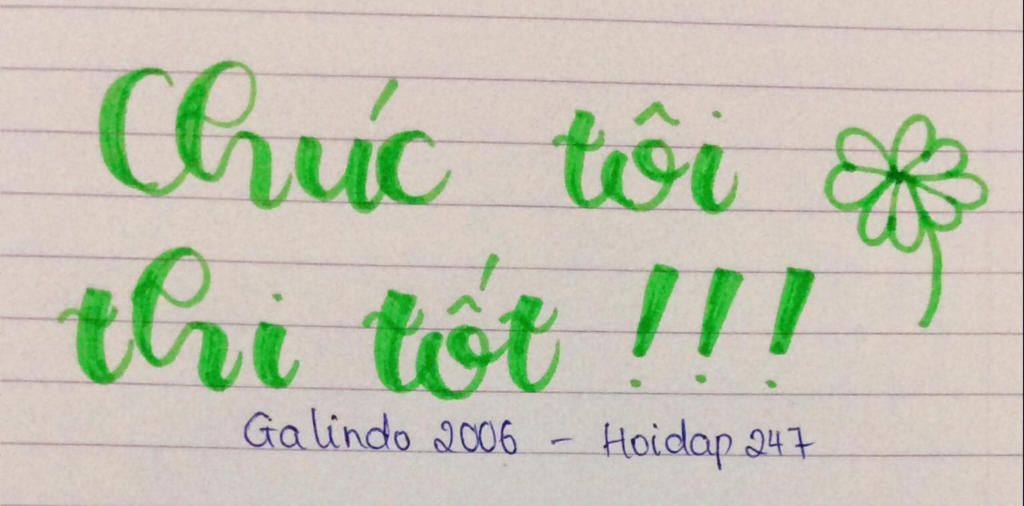 Chúc tôi
thi tốt !!!
Galindo 2006 - Hoidap 247